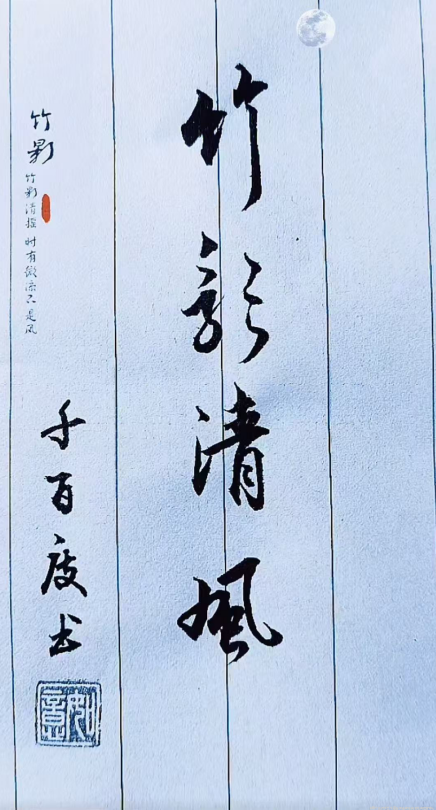 竹影清風
千百度书
如意
竹影
竹影清摇 时有微凉不是风